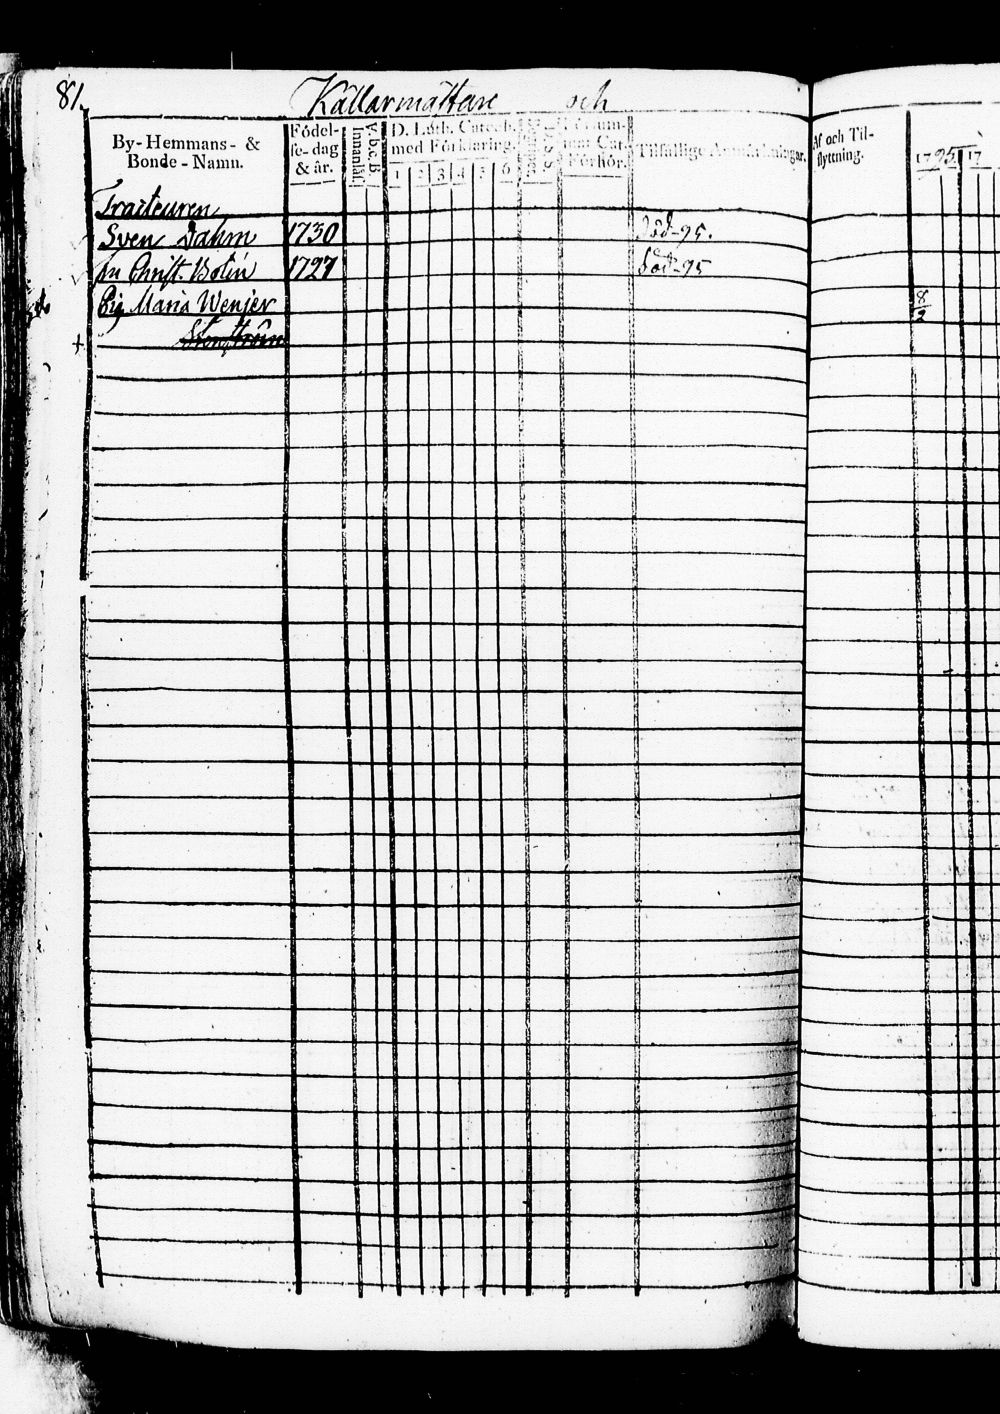 81.
Källarmästare och
By- Hemmans- & Bonde-Namn.
Födelse-dag & år.
V. b. c. B Innanläs.
D. Luth. Catech. med Förklaring.
1 2 3 4 5 6
Cat. Förhör.
Tilfällige Anmärkningar.
Af och Til-flyttning.
1795 17
Tracteuren
Sven Dahm 1730 död -95.
hu Christ. Bolin 1727 död -95
Pig Maria Wenjer 8/2
Stenström
+